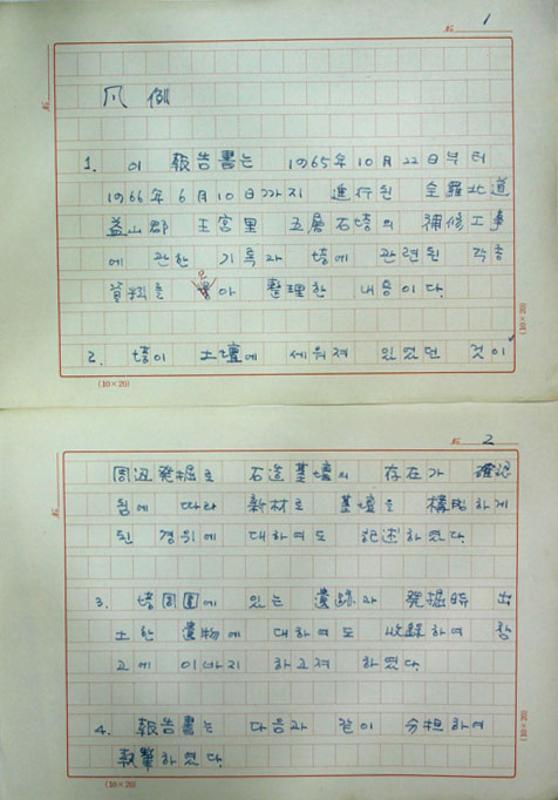 No. 1
凡 例
1. 이 報告書는 1965年 10月 22日부터
1966年 6月 10日까지 進行된 全羅北道
益山郡 王宮里 五層石塔의 補修工事
에 관한 기록과 塔에 관련된 각종
資料를 아 整理한 내용이다.
2. 塔이 土壇에 세워져 있었던 것이
(10×20)
(10×20)
No. 2
周辺発掘로 石造基壇의 存在가 確認
됨에 따라 新材로 基壇을 構成하게
된 경위에 대하여도 記述하였다.
3. 塔周囲에 있는 遺跡과 発掘時 出
土한 遺物에 대하여도 收錄하여 참
고에 이바지 하고져 하였다.
4. 報告書는 다음과 같이 分担하여
執筆하였다.
(10×20)
(10×20)